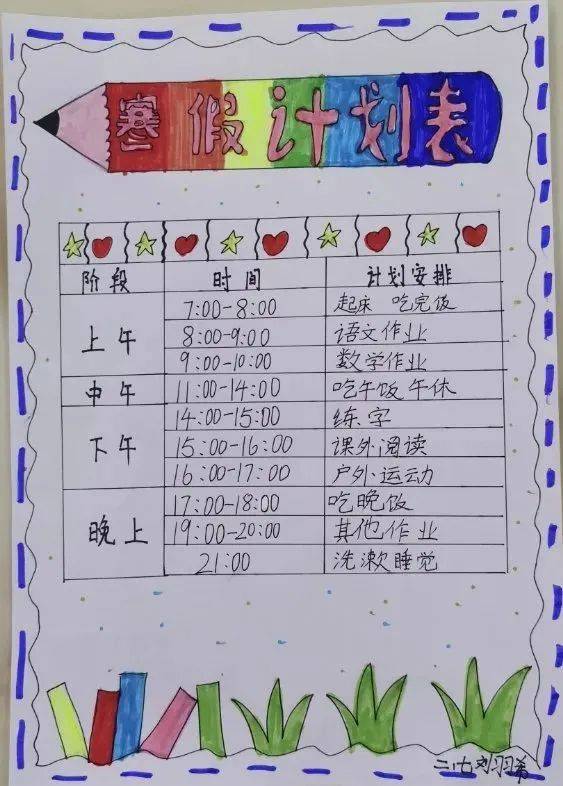 寒假计划表
阶段 时间 计划安排
上午 7:00-8:00 起床 吃完饭
8:00-9:00 语文作业
9:00-10:00 数学作业
中午 11:00-14:00 吃午饭 午休
下午 14:00-15:00 练字
15:00-16:00 课外阅读
16:00-17:00 户外运动
晚上 17:00-18:00 吃晚饭
19:00-20:00 其他作业
21:00 洗漱睡觉
二.七 刘羽希